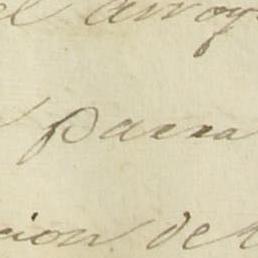 el arroyo
para
cion de